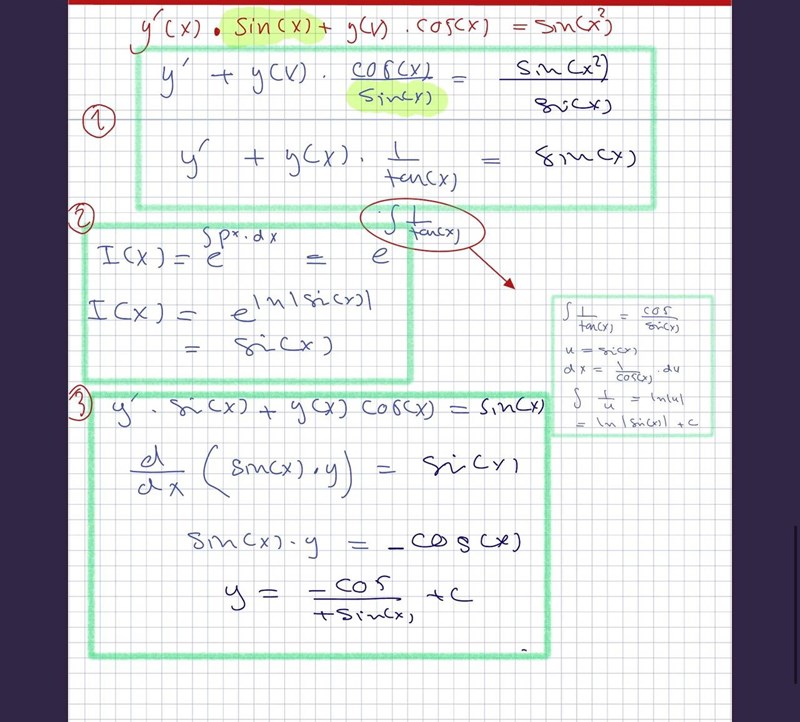 y'(x) · sin(x) + y(x) · cos(x) = sin(x²)
y' + y(x) · cos(x)/sin(x) = sin(x²)/si(x)
①
y' + y(x) · 1/tan(x) = sin(x)
②
I(x) = e^∫p^x·dx = e^∫1/tan(x)
I(x) = e^ln|si(x)|
= si(x)
∫ 1/tan(x) = cos/sin(x)
u = si(x)
dx = 1/cos(x) · du
∫ 1/u = ln|u|
= ln|sin(x)| + c
③
y' · si(x) + y(x) cos(x) = sin(x)
d/dx (sin(x) · y) = si(x)
sin(x) · y = -cos(x)
y = -cos/+sin(x) + c